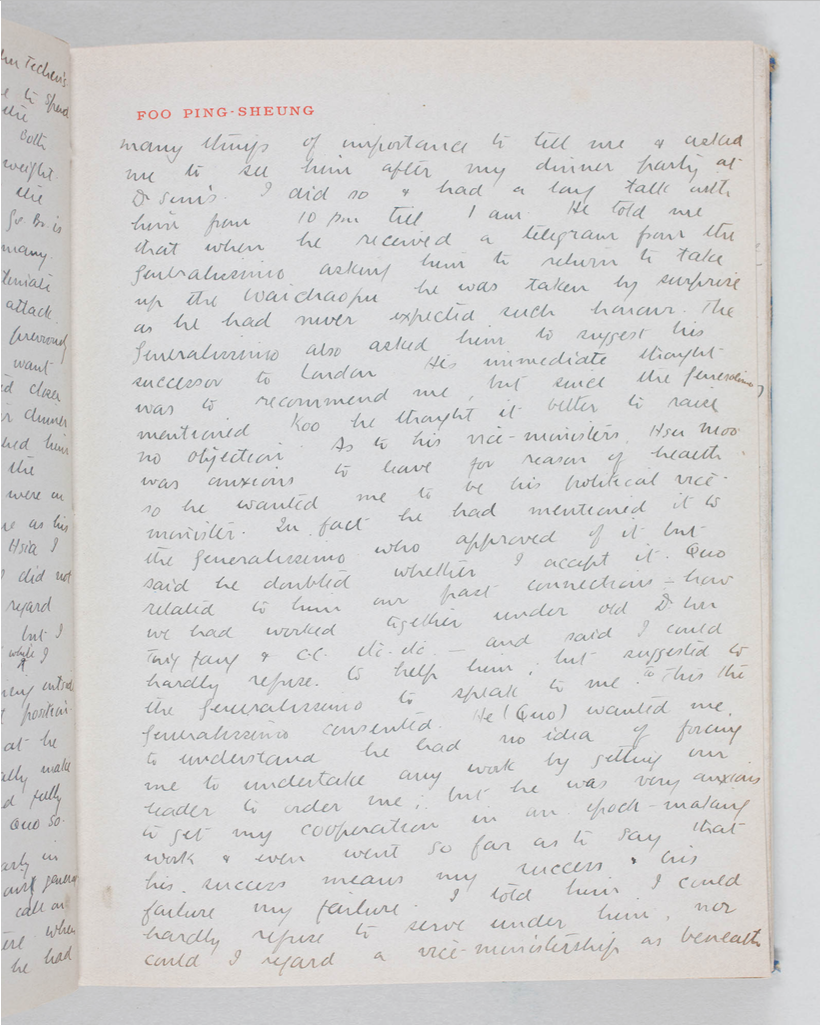 to spend
the
both
weight.
the
is
many.
attack.
want
closer
dinner
him
the
were in
as his
Hsia I
did not
regard
but I
while I
position.
at he
make
fully
Quo so
in
call on
when
he had
FOO PING-SHEUNG
many things of importance to tell me & asked
me to see him after my dinner party at
Dr Sun's. I did so & had a long talk with
him from 10 pm till 1 am. He told me
that when he received a telegram from the
Generalissimo asking him to return to take
up the Waichaopu he was taken by surprise
as he had never expected such honour. The
Generalissimo also asked him to suggest his
successor to London. His immediate thought
was to recommend me, but since the Generalissimo
mentioned Koo he thought it better to raise
no objection. As to his vice-ministers, Hsu Moo
was anxious to leave for reason of health.
so he wanted me to be his political vice-
minister. In fact he had mentioned it to
the Generalissimo who approved of it but
said he doubted whether I accept it. Quo
related to him our past connections – how
we had worked together under old Dr Wu
Ting fang & CC. etc. etc. — and said I could
hardly refuse to help him, but suggested to
the Generalissimo to speak to me. To this the
Generalissimo consented. He (Quo) wanted me
to understand he had no idea of forcing
me to undertake any work by getting our
leader to order me, but he was very anxious
to get my cooperation in an epoch-making
work & even went so far as to say that
his success means my success & his
failure my failure. I told him I could
hardly refuse to serve under him, nor
could I regard a vice-ministership as beneath